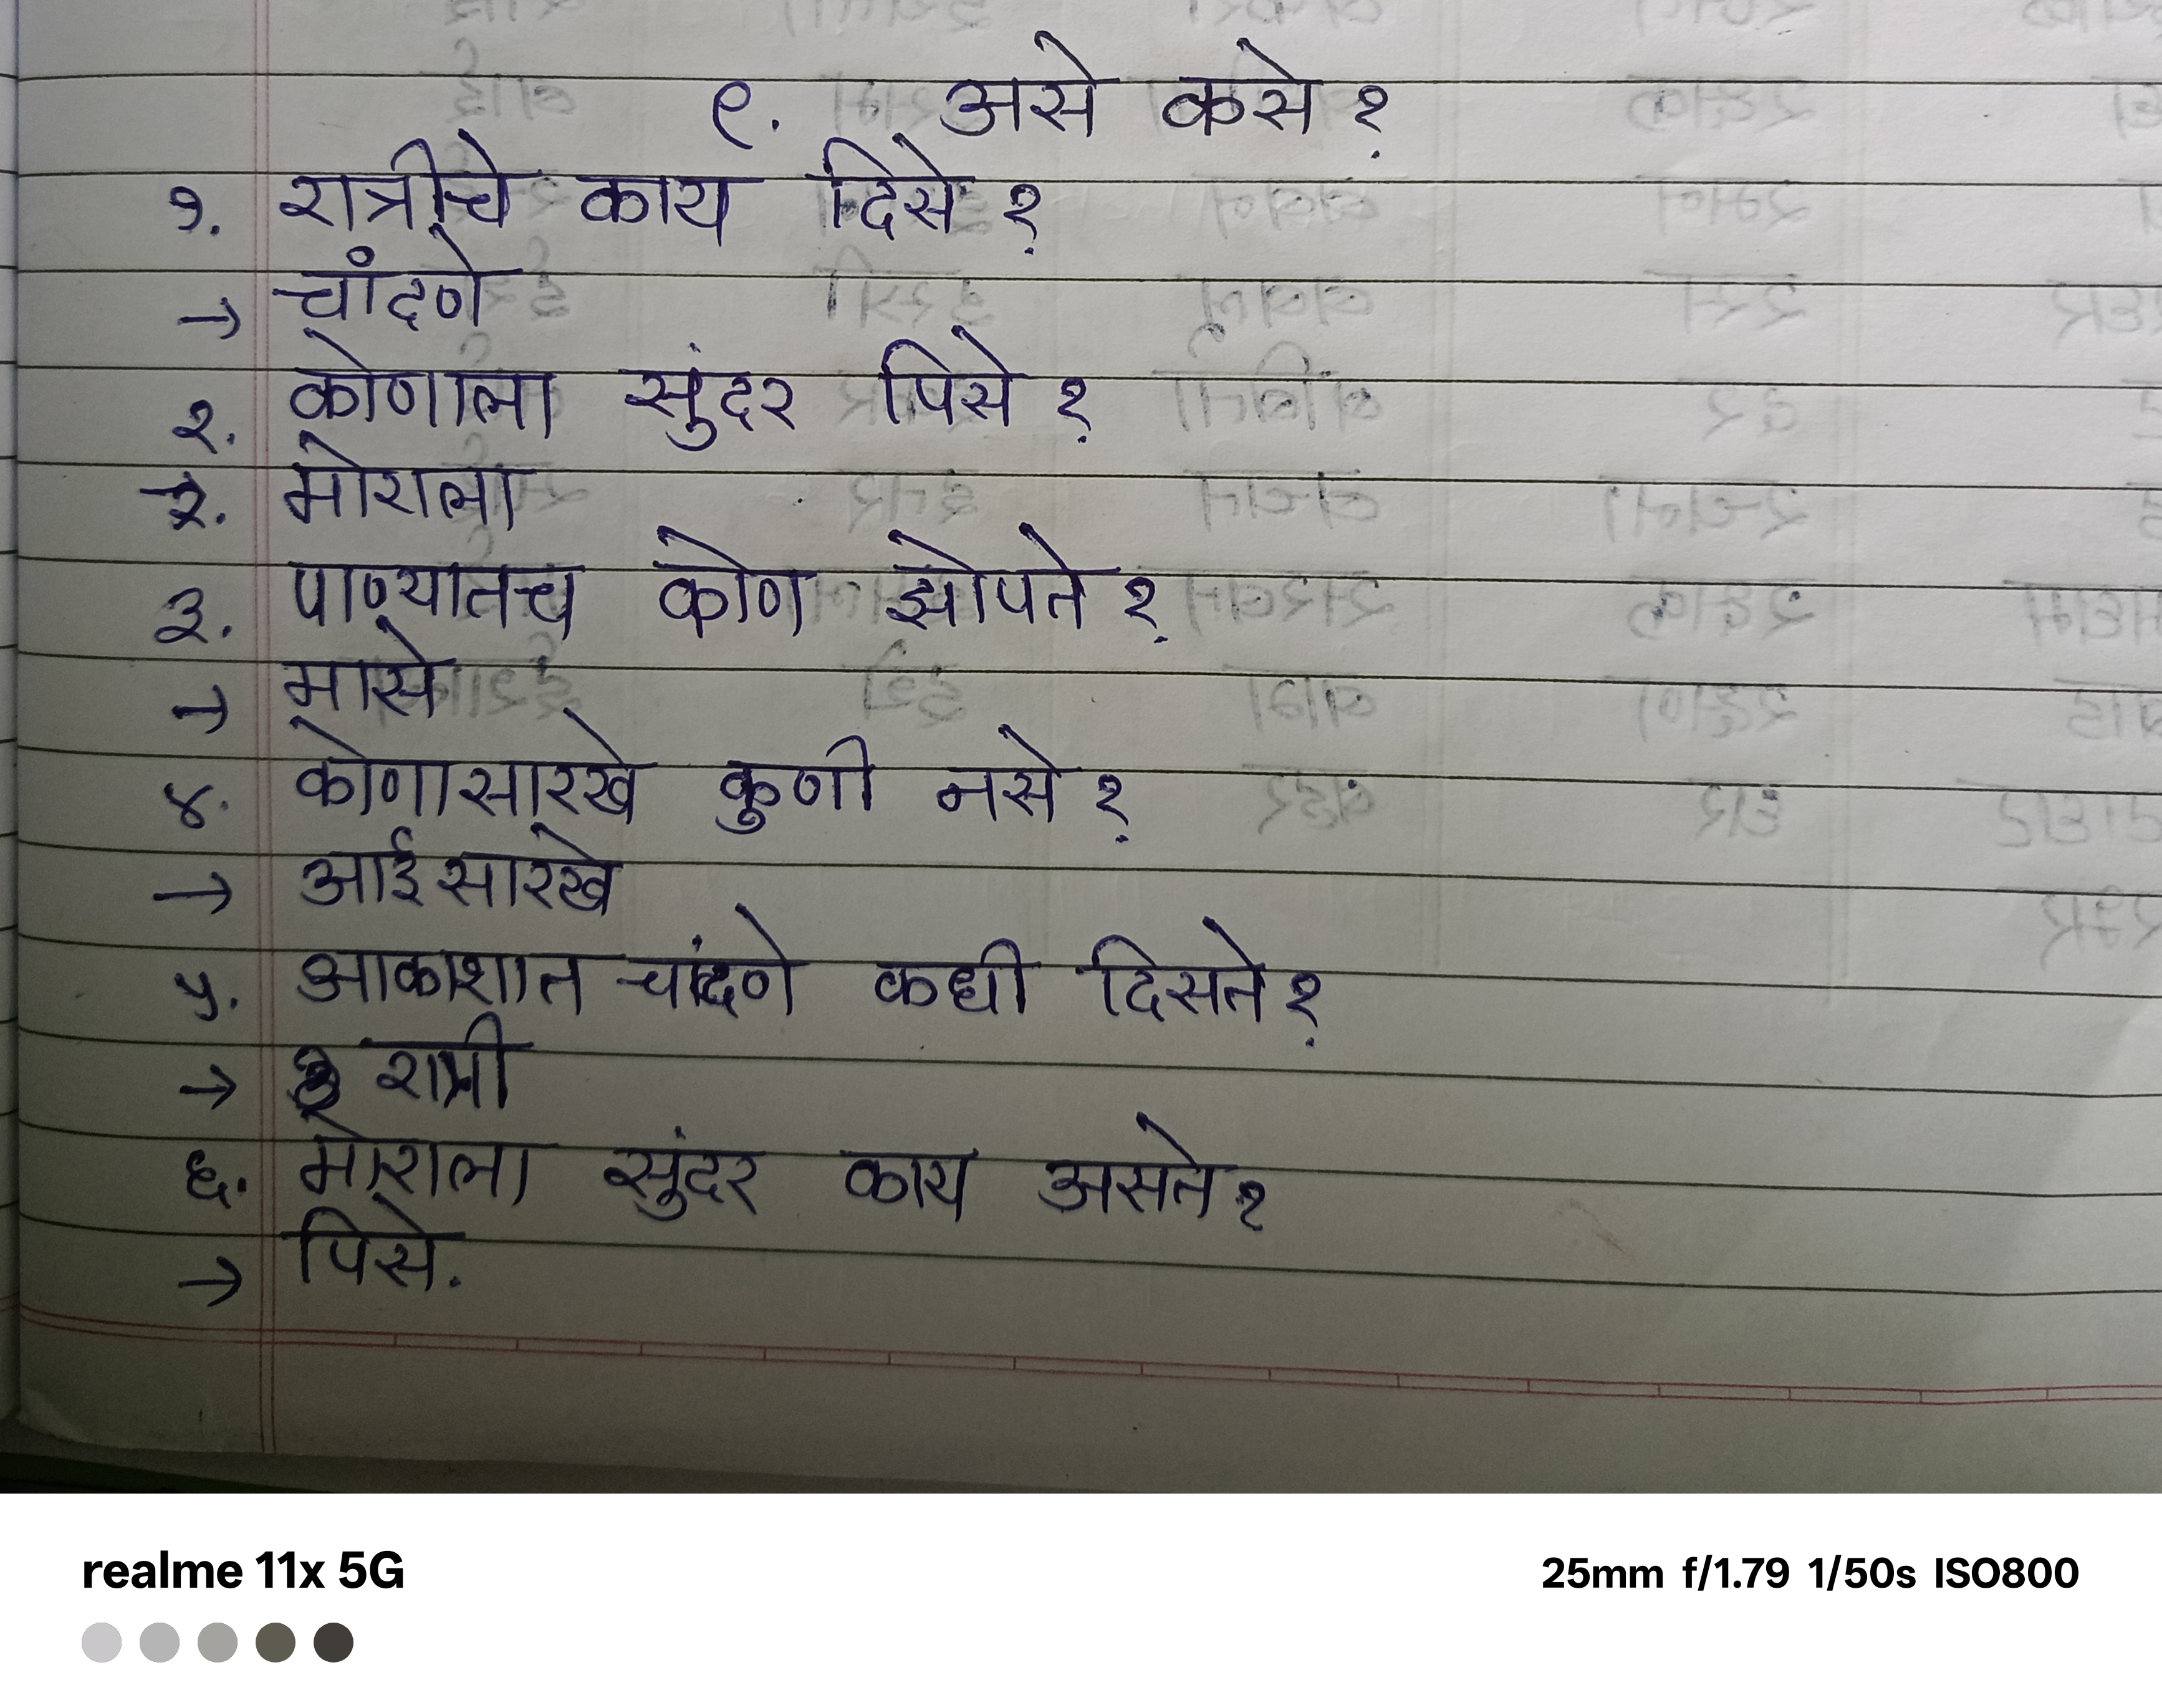 ९. असे कसे?
१. रात्रीचे काय दिसे?
→ चांदणे
२. कोणाला सुंदर पिसे?
→ मोराला
३. पाण्यातच कोण झोपते?
→ मासे
४. कोणासारखे कुणी नसे?
→ आईसारखे
५. आकाशात चांदणे कधी दिसते?
→ रात्री
६. मोराला सुंदर काय असते?
→ पिसे.
realme 11x 5G
25mm f/1.79 1/50s ISO800